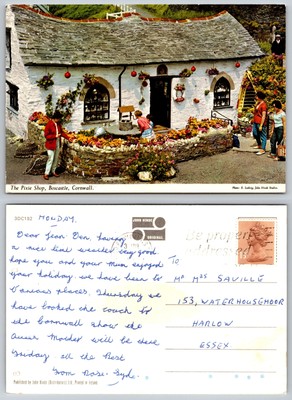 The Pixie Shop, Boscastle, Cornwall.
Photo: E. Ludwig, John Hinde Studios.
3DC132
MONDAY.
Dear Jean Den. having
a nice time weather very good
hope you and your Mum enjoyed
your holiday we have been to
Various places. Thursday we
have booked the coach to
the Cornwall show the
Queen Mother will be there
Friday all the Best
From Rose. Syd.
JOHN HINDE
ORIGINAL
Be properly
addressed
To
Mr Mrs SAVILLE
153, WATERHOUSEMOOR
HARLOW
ESSEX
Published by John Hinde (Distributors) Ltd. Printed in Ireland.